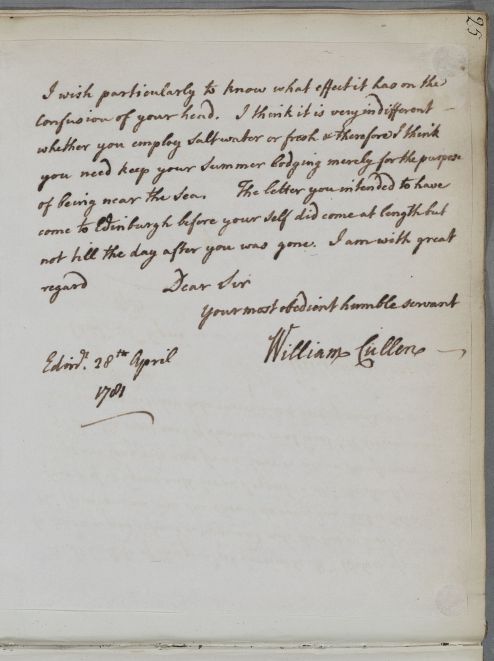 25
I wish particularly to know what effect it has on the
confusion of your head. I think it is very indifferent
whether you employ salt water or fresh & therefore I think
you need keep your Summer lodging merely for the purpose
of being near the Sea. The letter you intended to have
come to Edinburgh before your self did come at length but
not till the day after you was gone. I am with great
regard Dear Sir
your most obedient humble servant
William Cullen
Edinr. 28th April
1781